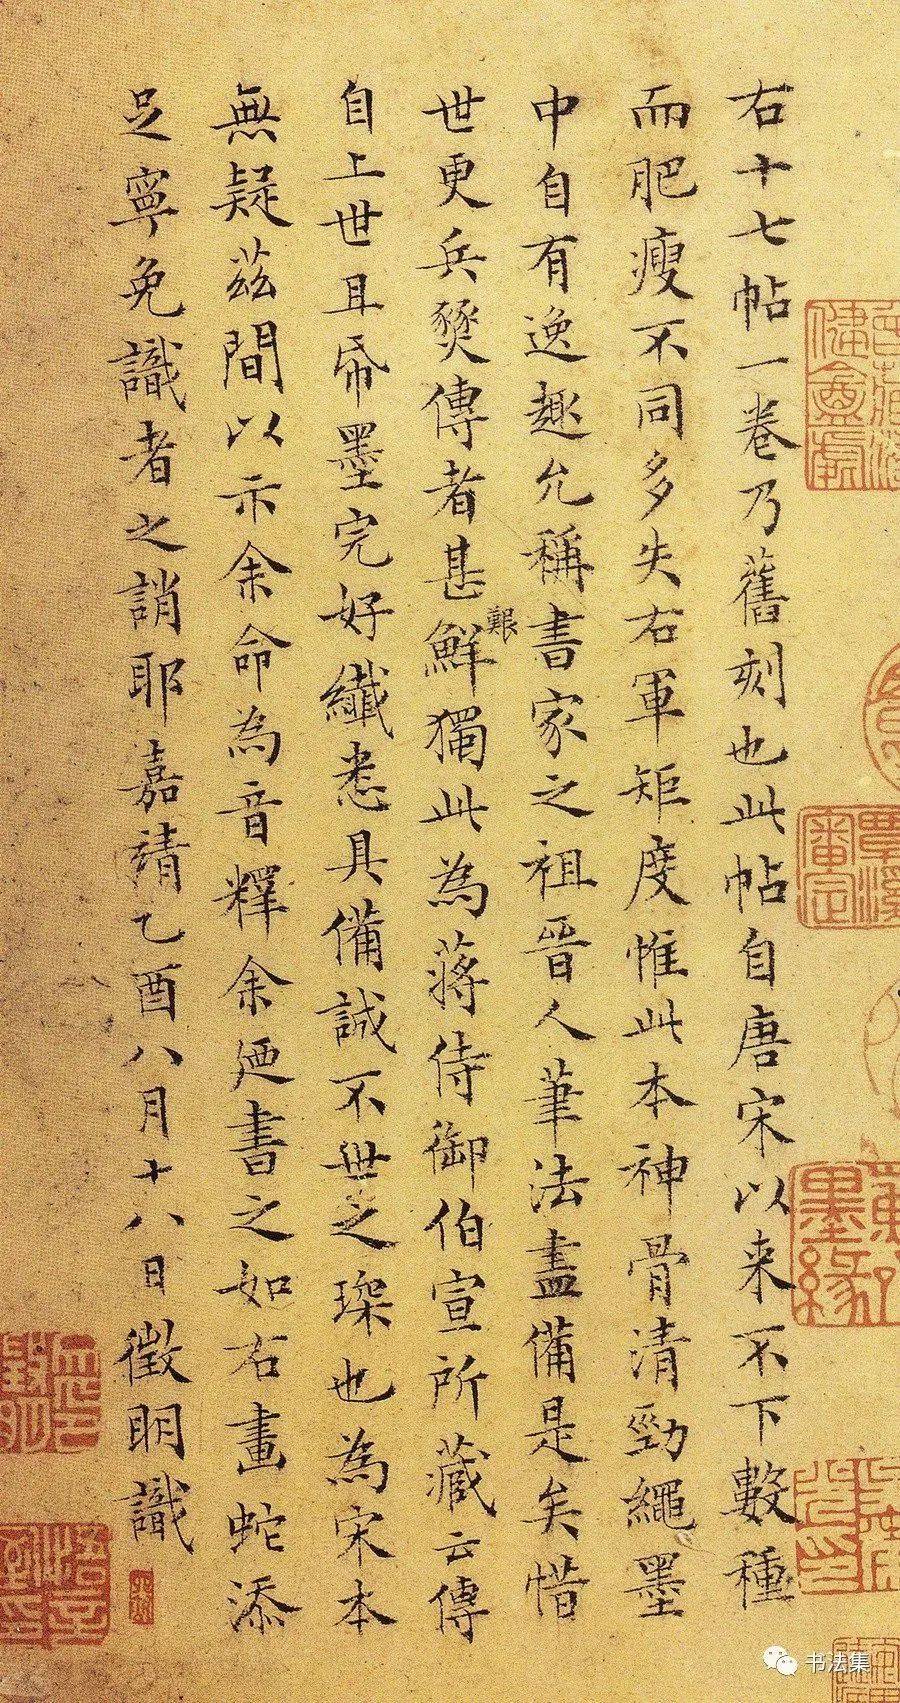 右十七帖一卷乃舊刻也此帖自唐宋以来不下數種
而肥瘦不同多失右軍矩度惟此本神骨清勁繩墨
中自有逸趣允稱書家之祖晉人筆法盡備是矣惜
世更兵燹傳者甚鮮獨此為蔣侍御伯宣所藏云傳
艱
自上世且帋墨完好纖悉具備誠不世之琛也為宋本
無疑茲間以示余命為音釋余廼書之如右畫蛇添
足寧免識者之誚耶嘉靖乙酉八月十八日徵明識
墨緣
审定
书法集